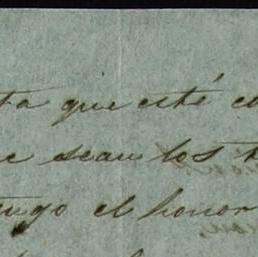 ta que esté c
e sean los t
engo el honor